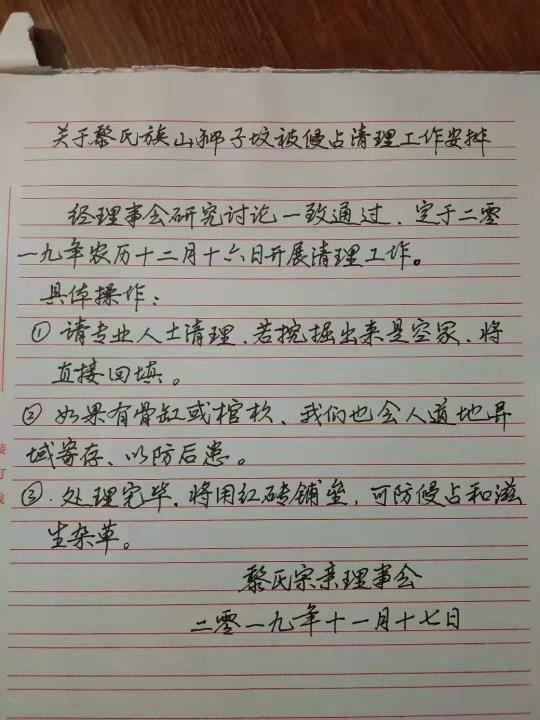 关于黎氏族山狮子坟被侵占清理工作安排
经理事会研究讨论一致通过，定于二零
一九年农历十二月十六日开展清理工作。
具体操作：
① 请专业人士清理，若挖掘出来是空冢，将
直接回填。
② 如果有骨缸或棺柩，我们也会人道地异
域寄存，以防后患。
③．处理完毕，将用红砖铺垒，可防侵占和滋
生杂草。
黎氏宗亲理事会
二零一九年十一月十七日
装
订
线